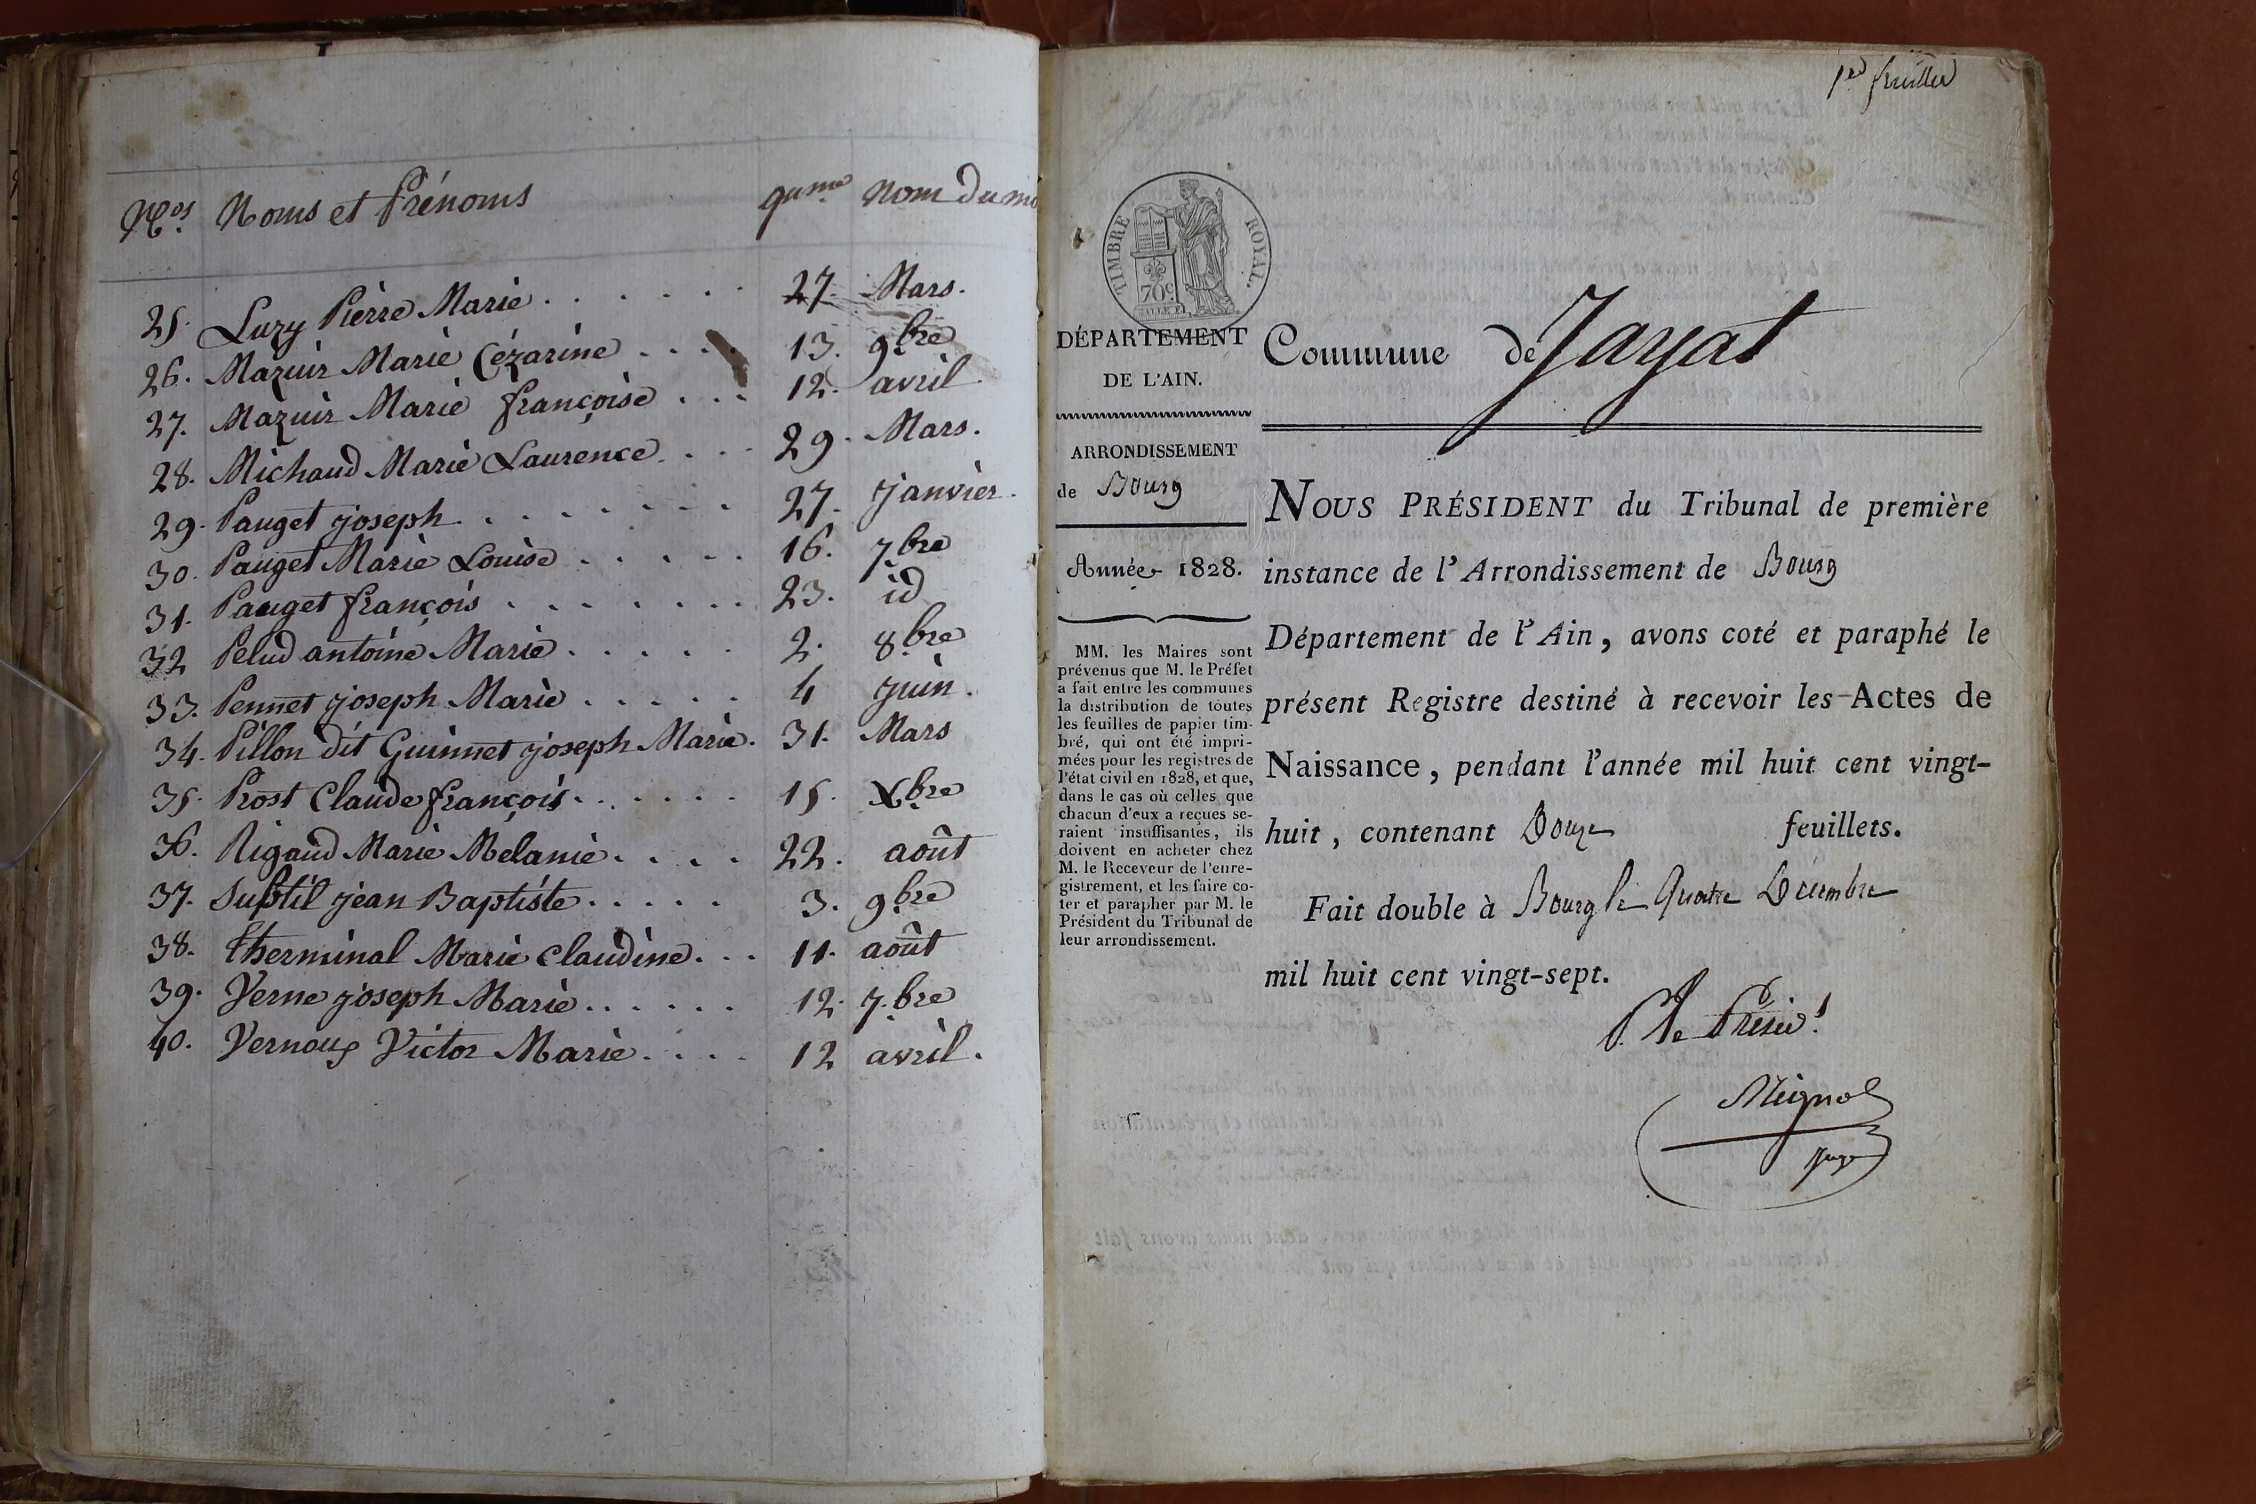 Nos. Noms et Prénoms qume nom du mo
25. Luzy Pierre Marie . . . . . . 27. Mars.
26. Mazuir Marie Cézarine . . . . 13. 9.bre
27. Mazuir Marie françoise . . . 12. avril
28. Michaud Marie Laurence . . . 29. Mars.
29. Pauget joseph . . . . . . . . 27. janvier.
30. Pauget Marie Louise . . . . . 16. 7.bre
31. Pauget françois . . . . . . . 23. id
32 Pelud antoine Marie . . . . . 2. 8.bre
33. Pennet joseph Marie . . . . . 4 juin.
34. Pillon dit Guinnet joseph Marie. 31. Mars
35. Prost Claude françois . . . . . . 15. Xbre
36. Rigaud Marie Melanie . . . . 22. août
37. Subtil jean Baptiste . . . . . 3. 9.bre
38. therminal Marie Claudine . . . 11. août
39. Verne joseph Marie . . . . . . 12. 7.bre
40. Vernoux Victor Marie . . . . 12 avril.
1er feuillet
TIMBRE ROYAL.
70c.
DÉPARTEMENT
DE L'AIN.
ARRONDISSEMENT
de Bourg
Année 1828.
MM. les Maires sont
prévenus que M. le Préfet
a fait entre les communes
la distribution de toutes
les feuilles de papier tim-
bré, qui ont été impri-
mées pour les registres de
l'état civil en 1828, et que,
dans le cas où celles que
chacun d'eux a reçues se-
raient insuffisantes, ils
doivent en acheter chez
M. le Receveur de l'enre-
gistrement, et les faire co-
ter et parapher par M. le
Président du Tribunal de
leur arrondissement.
Commune de Jayat
NOUS PRÉSIDENT du Tribunal de première
instance de l'Arrondissement de Bourg
Département de l'Ain, avons coté et paraphé le
présent Registre destiné à recevoir les Actes de
Naissance, pendant l'année mil huit cent vingt-
huit, contenant Douze feuillets.
Fait double à Bourg le Quatre Décembre
mil huit cent vingt-sept.
P. le Présid.t
Juge